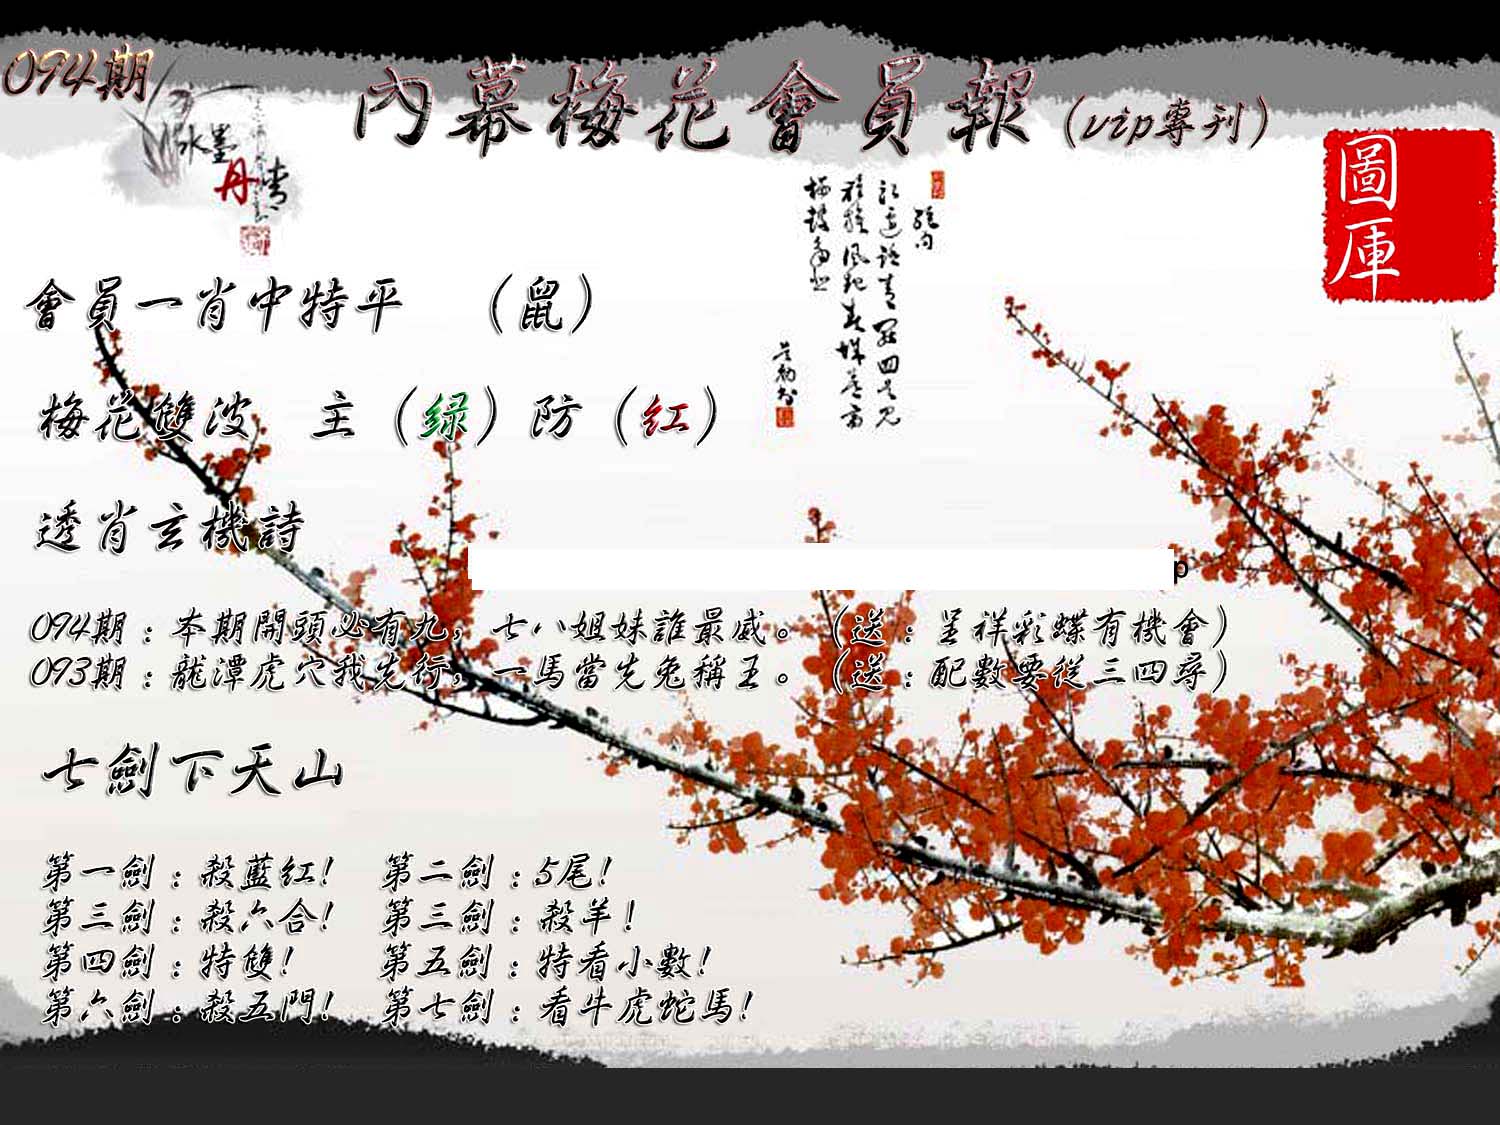 094期
內幕梅花會員報(vip專刊)
水墨
丹青
圖
庫
會員一肖中特平 (鼠)
梅花雙波 主(绿)防(红)
透肖玄機詩
p
094期:本期開頭必有九,七八姐妹誰最威。(送:呈祥彩蝶有機會)
093期:龍潭虎穴我先行,一馬當先兔稱王。(送:配數要從三四尋)
七劍下天山
第一劍:殺藍红! 第二劍:5尾!
第三劍:殺六合! 第三劍:殺羊!
第四劍:特雙! 第五劍:特看小數!
第六劍:殺五門! 第七劍:看牛虎蛇馬!